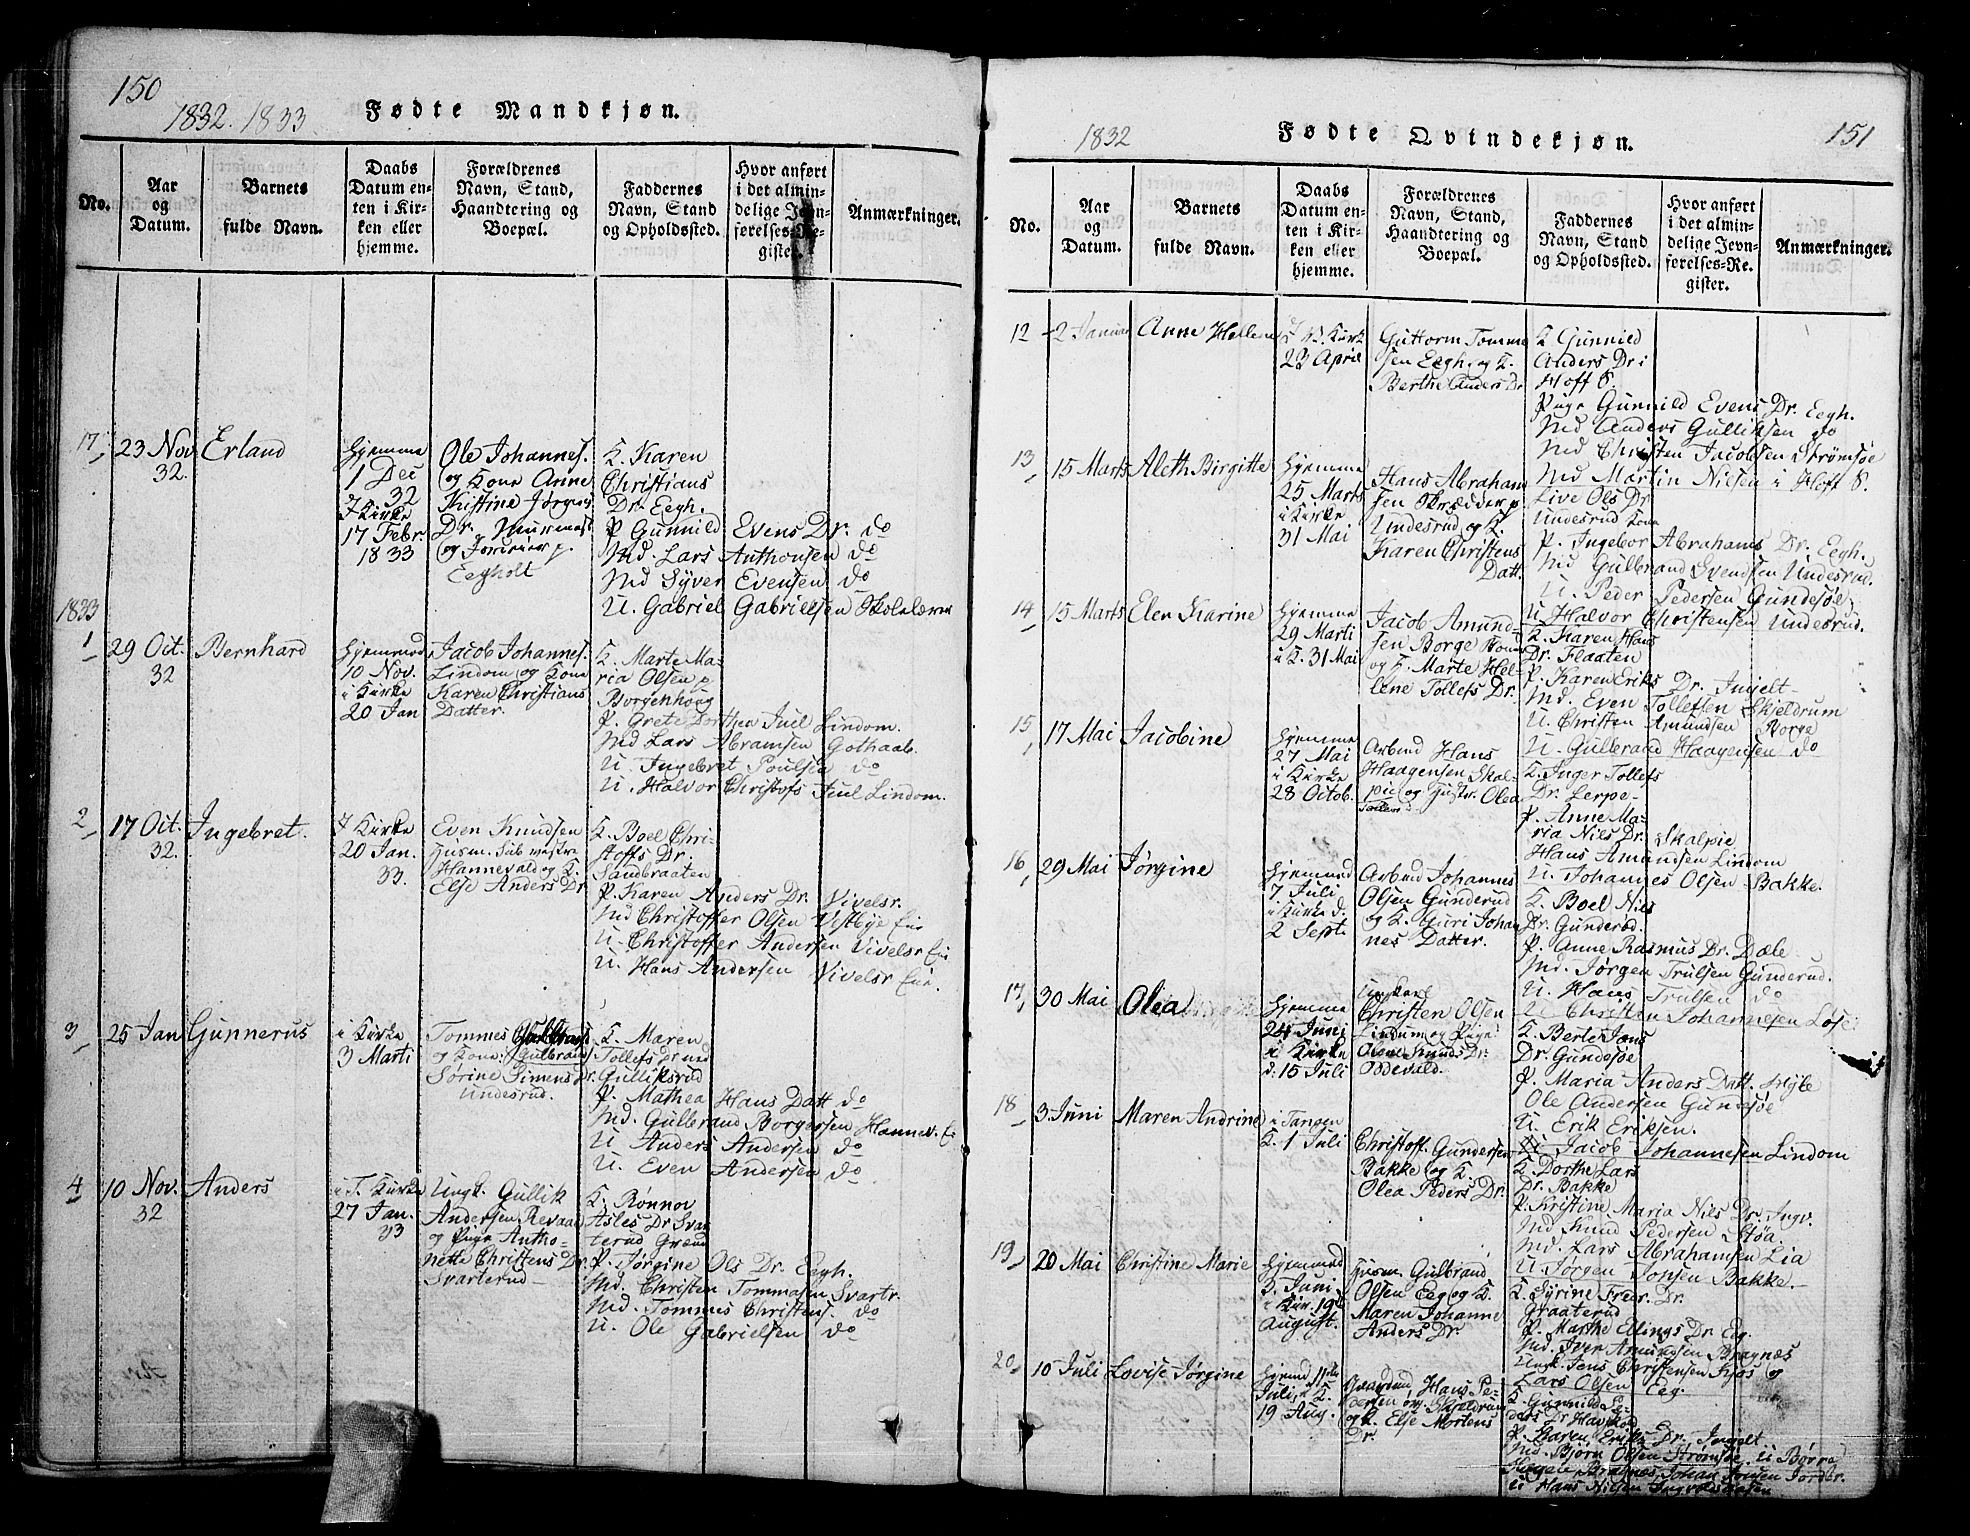 150
1832. 1833.
Fødte Mandkjøn.
No.
Aar
og
Datum.
Barnets
fulde Navn.
Daabs
Datum en-
ten i Kir-
ken eller
hjemme.
Forældrenes
Navn, Stand,
Haandtering og
Boepæl.
Faddernes
Navn, Stand
og Opholdssted.
Hvor anført
i det almin-
delige Jevn-
førelses-Re-
gister.
Anmærkninger.
17,
23 Nov
32.
Erland
Hjemme
1 Dec
32
I Kirke
17 Febr
1833
Ole Johannes.
og Kone Anne
Kistine Jørgens
Dr.
og
Eegholt
K. Karen
Christians
Dr. Eegh.
P. Gunnild Evens Dr. do
Md. Lars Anthonsen do
Md Syver Evensen do
U. Gabriel Gabrielsen Skolelærer
1833
1
29 Oct.
32
Bernhard
Hjemmed
10 Nov.
i Kirke
20 Jan
Jacob Johannes.
Lindom og Kone
Karen Christians
Datter.
K. Marte Ma-
ria Olsen p
Borgenhoug
P. Grete Dorthea Juel Lindom.
Md Lars Abramsen Gothaab.
U. Ingebret Poulsen do
U. Halvor Christofs Juul Lindom.
2
17 Oct.
32.
Ingebret.
I Kirke
20 Jan.
33.
Even Knudsen
Husm.
Hannevald og K.
Else Anders Dr
K. Boel Chri-
stoffs Dr.
Sandbraaten
P. Karen Anders Dr. Vivelsr.
Md Christoffer Olsen Vestbye Eie
U. Christoffer Andersen Vivelsr Eie
U. Hans Andersen Vivelsr Eie.
3
25 Jan
Gunnerus
i Kirke
3 Marti
Tommes
og Kone: Gulbrands
Sørine Simens Dr.
Undesrud.
K. Maren
Tollefs Dr ned
Gulliksrud
P. Mathea Hans Datt do
Md. Gulbrand Borgersen Hannev. Eie
U. Anders Andersen do
U. Even Andersen do
4
10 Nov.
32
Anders
i T. Kirke
27 Jan.
33
Ungk. Gullik
Andersen Revaa
og Pige Antho-
nette Christens Dr
Svarterud
K. Rønnov
Asles Dr Svar-
terud Grænd
P. Jørgine Ols Dr. Eegh.
Md. Christen Tommasen Svartr.
Md. Tommes Christens. do
U. Ole Gabrielsen do
1832
Fødte Qvindekjøn.
151
No.
Aar
og
Datum.
Barnets
fulde Navn.
Daabs
Datum en-
ten i Kir-
ken eller
hjemme.
Forældrenes
Navn, Stand,
Haandtering og
Boepæl.
Faddernes
Navn, Stand
og Opholdssted.
Hvor anført
i det almin-
delige Jevn-
førelses-Re-
gister.
Anmærkninger.
12
2 Januar
Anne Hellene
Kirke
23 April
Guttorm Tomme-
sen Eegh. og K.
Berthe Anders Dr
K Gunnild
Anders Dr i
Hoff S.
Pige Gunnild Evens Dr. Eegh.
Md Anders Gulliksen do
Md Christen Jacobsen Strømsøe
Md Martin Nielsen i Hoff S.
13
15 Marts
Aleth Birgitte
Hjemme
25 Marts
i Kirke
31 Mai
Hans Abraham-
sen Skrædder p
Undesrud og K.
Karen Christens
Datt.
Live Ols Dr
Undesrud Kone
P. Ingebor Abrahams Dr. Eegh.
Md Gulbrand Svendsen Undesrud.
U. Peder Pedersen Gundesøe
U Halvor Christensen Undesrud.
14
15 Marts
Elen Karine
Hjemme
29 Marti
i K. 31 Mai
Jacob Amund-
sen Borge
og K. Marte Hel-
lene Tollefs Dr.
K. Karen Hans
Dr. Flaaten
P. Karen Eriks Dr. Ingelt-
Md. Even Tollefsen Skjeldrum
U. Christen Amundsen Borge
U. Gulbrand Haagensen do
15
17 Mai
Jacobine
Hjemme
27 Mai
i Kirke
28 Octob.
Arbmd Hans
Haagensen Skal-
pie og Olea
K. Inger Tollefs
Dr. Lerpe-
P. Anne Ma-
ria Niels Dr. Skalpie
Hans Amundsen Lindom
U. Johannes Olsen Bakke.
16
29 Mai
Jørgine
Hjemmed
7. Juli
i Kirke d.
2 Septe
Arbmd Johannes
Olsen Gunderud
og K. Guri Johan-
nes Datter.
K. Boel Niels
Dr. Gunderud.
P. Anne Rasmus Dr. Dæle
Md. Jørgen Trulsen Gunderud.
U. Hans Trulsen do
U. Christen Johannesen Løse
17
30 Mai
Olea
Hjemme
24 Juni
i Kirke
d. 15 Juli
Ungkarl
Christen Olsen
Lindum og Pige
Olea Knuds Dr.
Oddevald.
K. Berte Jons
Dr. Gundesøe
P. Maria Anders Datt. Myle
Ole Andersen Gundesøe
U. Erik Eriksen.
U. Jacob Johannesen Lindom
18
3 Juni
Maren Andrine
i Tangen
K. 1 Juli
Christoff. Gundersen
Bakke og K.
Olea Peders Dr.
K Dorthe Lars
Dr. Bakke
P. Kristine Maria Niels Dr. Ingv.
Md Knud Pedersen Støa.
Md. Lars Abrahamsen Lia
U. Jørgen Jonsen Bakke.
19
20 Mai
Christine Marie
Hjemmed
3. Juni
i Kir. 19de
August.
Husm Gulbrand
Olsen Eeg og K.
Maren Johanne
Anders Dr.
K. Syrine Fredr. Dr.
Haaterud
P. Marthe Ellings Dr Eeg.
Md. Iver Amundsen Bragnæs
Ungk. Jens Christensen Kjøs og
Lars Olsen Eeg.
20
10 Juli
Lovise Jørgine
Hjemd 11te
Juli, i K.
19 Aug.
Gaardmd, Hans Pe-
dersen Skjeldrum
og K. Else Mortens
Dr.
K Gunnild Pe-
ders Dr Havskod
P. Karen Eriks Dr. Ingelt
Md. Bjørn Olsen Strømsøe, U. Børre
Bragnes, Johan Jonsen Jordbr.
U Hans Nielsen Ingvoldstasen